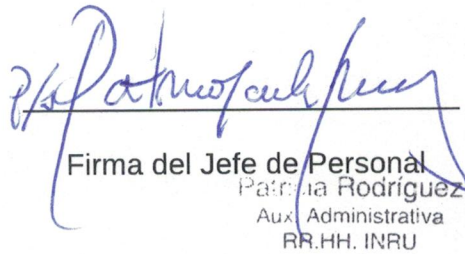 Firma del Jefe de Personal
Patricia Rodríguez
Aux. Administrativa
RR.HH. INRU